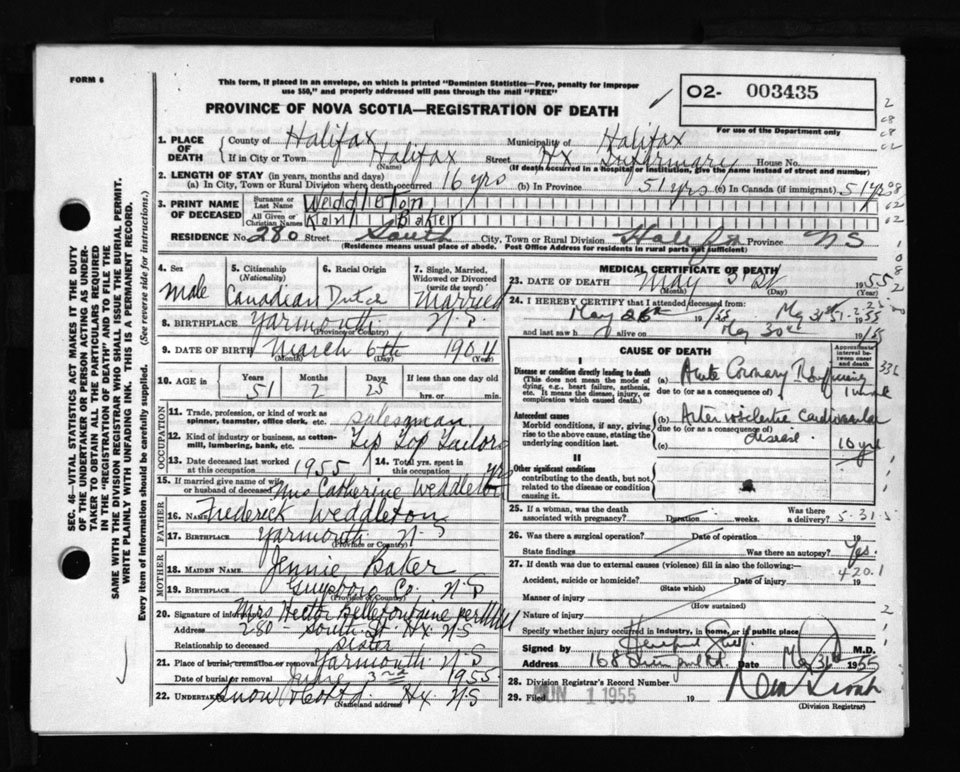 FORM 6
This form, if placed in an envelope, on which is printed "Dominion Statistics—Free, penalty for improper
use $50," and properly addressed will pass through the mail "FREE"
PROVINCE OF NOVA SCOTIA—REGISTRATION OF DEATH
O2- 003435
For use of the Department only
1. PLACE OF DEATH
County of Halifax Municipality of Halifax
If in City or Town Halifax Street Hx Infirmary House No.
(Name) (If death occurred in a hospital or institution, give the name instead of street and number)
2. LENGTH OF STAY (in years, months and days)
(a) In City, Town or Rural Division where death occurred 16 yrs (b) In Province 51 yrs (c) In Canada (if immigrant) 51 yrs
3. PRINT NAME OF DECEASED
Surname or Last Name Weddleton
All Given or Christian Names Karl Baker
RESIDENCE No. 280 Street South City, Town or Rural Division Halifax Province N S
(Residence means usual place of abode. Post Office Address for residents in rural parts not sufficient)
4. Sex Male
5. Citizenship (Nationality) Canadian
6. Racial Origin Dutch
7. Single, Married, Widowed or Divorced (write the word) Married
8. BIRTHPLACE Yarmouth N.S.
(Province or Country)
9. DATE OF BIRTH March 6th 1904
(Month) (Day) (Year)
10. AGE in Years 51 Months 2 Days 25 If less than one day old
hrs. or min.
OCCUPATION
11. Trade, profession, or kind of work as spinner, teamster, office clerk, etc. salesman
12. Kind of industry or business, as cotton-mill, lumbering, bank, etc. Tip Top Tailors
13. Date deceased last worked at this occupation 1955 14. Total yrs. spent in this occupation yrs
15. If married give name of wife or husband of deceased Mrs Catherine Weddleton
FATHER
16. NAME Frederick Weddleton
17. BIRTHPLACE Yarmouth N-S
(Province or Country)
MOTHER
18. MAIDEN NAME Jennie Baker
19. BIRTHPLACE Guysboro Co. N S
(Province or Country)
20. Signature of informant Mrs Hector Bellefontaine per
Address 280 - South St. Hx. N S
Relationship to deceased Sister
21. Place of burial, cremation or removal Yarmouth N-S
Date of burial or removal June 3rd 1955
22. UNDERTAKER Snow & Co Ltd. Hx N S
(Name and address)
MEDICAL CERTIFICATE OF DEATH
23. DATE OF DEATH May 31st 1955
(Month) (Day) (Year)
24. I HEREBY CERTIFY that I attended deceased from:
May 26th 19/55 May 31st 1955
and last saw h alive on May 30th 19/55
CAUSE OF DEATH
Approximate interval between onset and death
I
Disease or condition directly leading to death
(This does not mean the mode of dying, e.g., heart failure, asthenia, etc. It means the disease, injury, or complication which caused death.)
(a) Acute Coronary
due to (or as a consequence of)
Antecedent causes
Morbid conditions, if any, giving rise to the above cause, stating the underlying condition last.
(b) Arteriosclerotic Cardiovascular
due to (or as a consequence of) disease
(c) 10 yrs
II
Other significant conditions
contributing to the death, but not related to the disease or condition causing it.
25. If a woman, was the death associated with pregnancy? Duration weeks. Was there a delivery? 5-31-5
26. Was there a surgical operation? Date of operation
State findings Was there an autopsy? Yes.
27. If death was due to external causes (violence) fill in also the following:— 420.1
Accident, suicide or homicide? Date of injury 19
(State which)
Manner of injury
(How sustained)
Nature of injury
Specify whether injury occurred in industry, in home, or in public place
Signed by M.D.
Address 168 Date May 31st 1955
28. Division Registrar's Record Number
29. Filed JUN 1 1955 19
(Division Registrar)
SEC. 46—VITAL STATISTICS ACT MAKES IT THE DUTY
OF THE UNDERTAKER OR PERSON ACTING AS UNDER-
TAKER TO OBTAIN ALL THE PARTICULARS REQUIRED
IN THE "REGISTRATION OF DEATH" AND TO FILE THE
SAME WITH THE DIVISION REGISTRAR WHO SHALL ISSUE THE BURIAL PERMIT.
WRITE PLAINLY WITH UNFADING INK. THIS IS A PERMANENT RECORD.
Every item of Information should be carefully supplied. (See reverse side for instructions.)